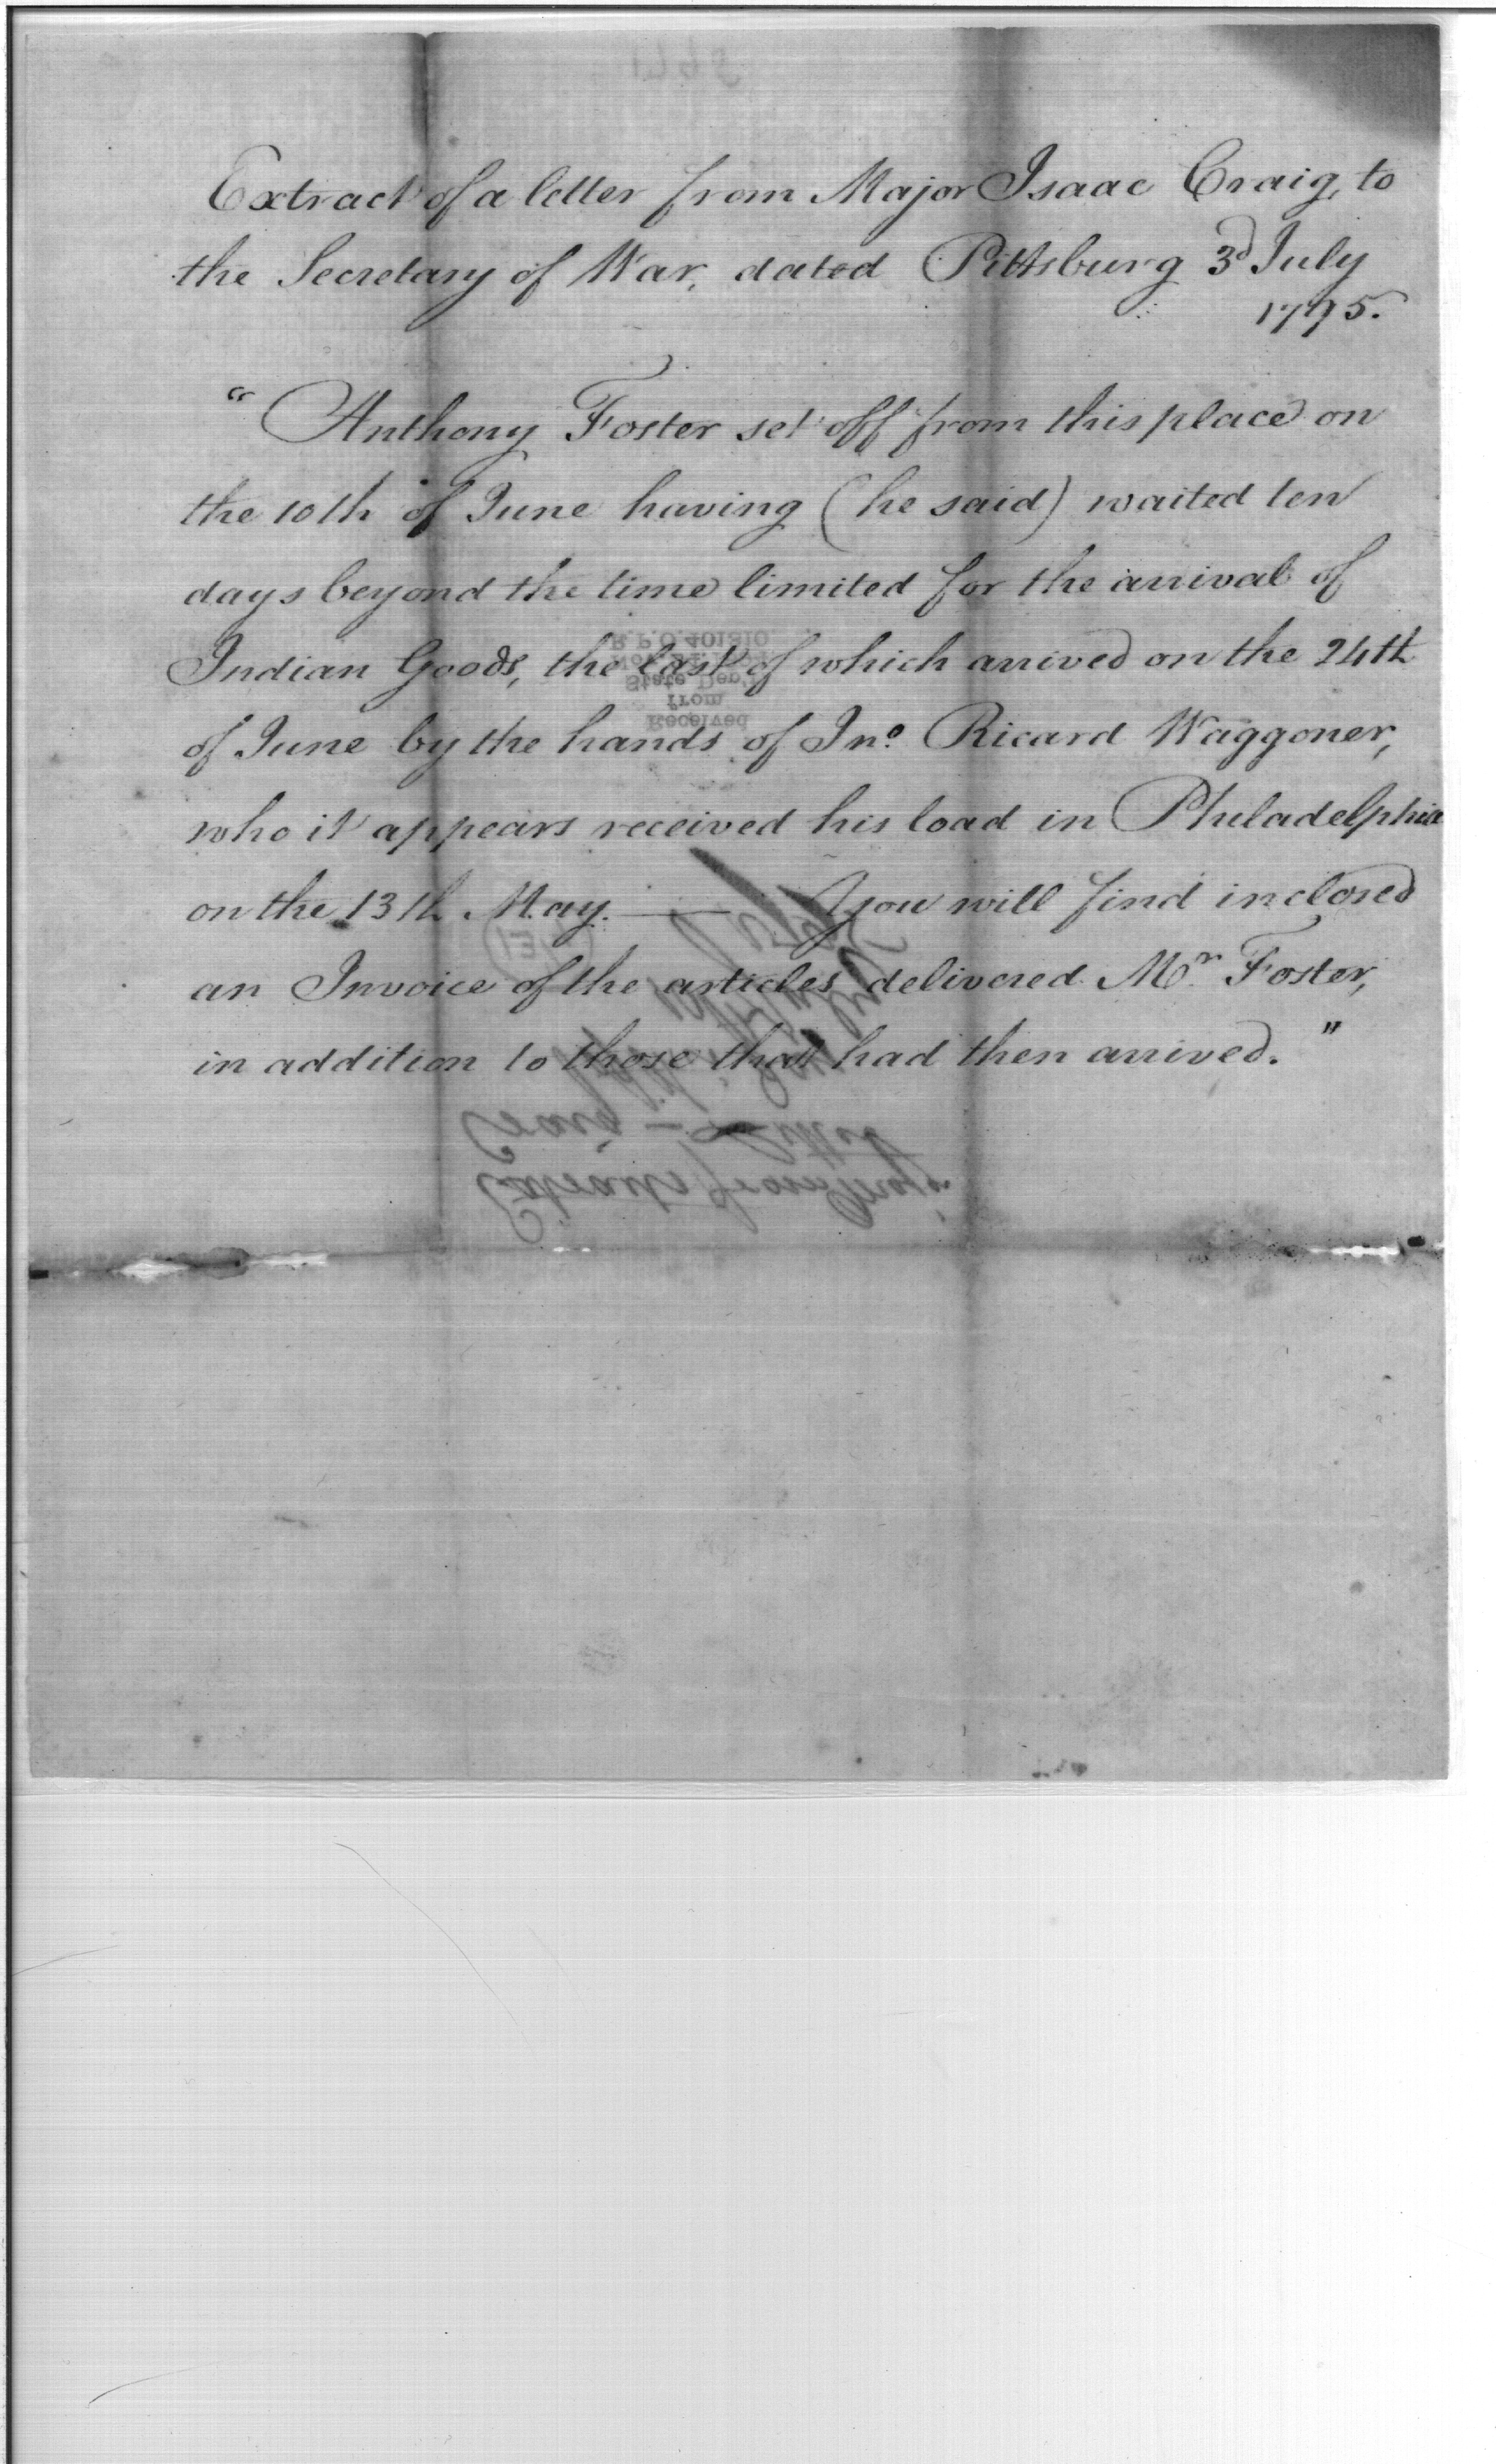 Extract of a letter from Major Isaac Craig, to
the Secretary of War, dated Pittsburg 3d July
1795.
"Anthony Foster set off from this place on
the 10th of June having (he said) waited ten
days beyond the time limited for the arrival of
Indian Goods, the last of which arrived on the 24th
of June by the hands of Jno. Ricard Waggoner,
who it appears received his load in Philadelphia
on the 13th May. — You will find inclosed
an Invoice of the articles delivered Mr. Foster,
in addition to those that had then arrived."
R.P.O. 401310
State Dep't
from
Received
Extracts from Major
Craig